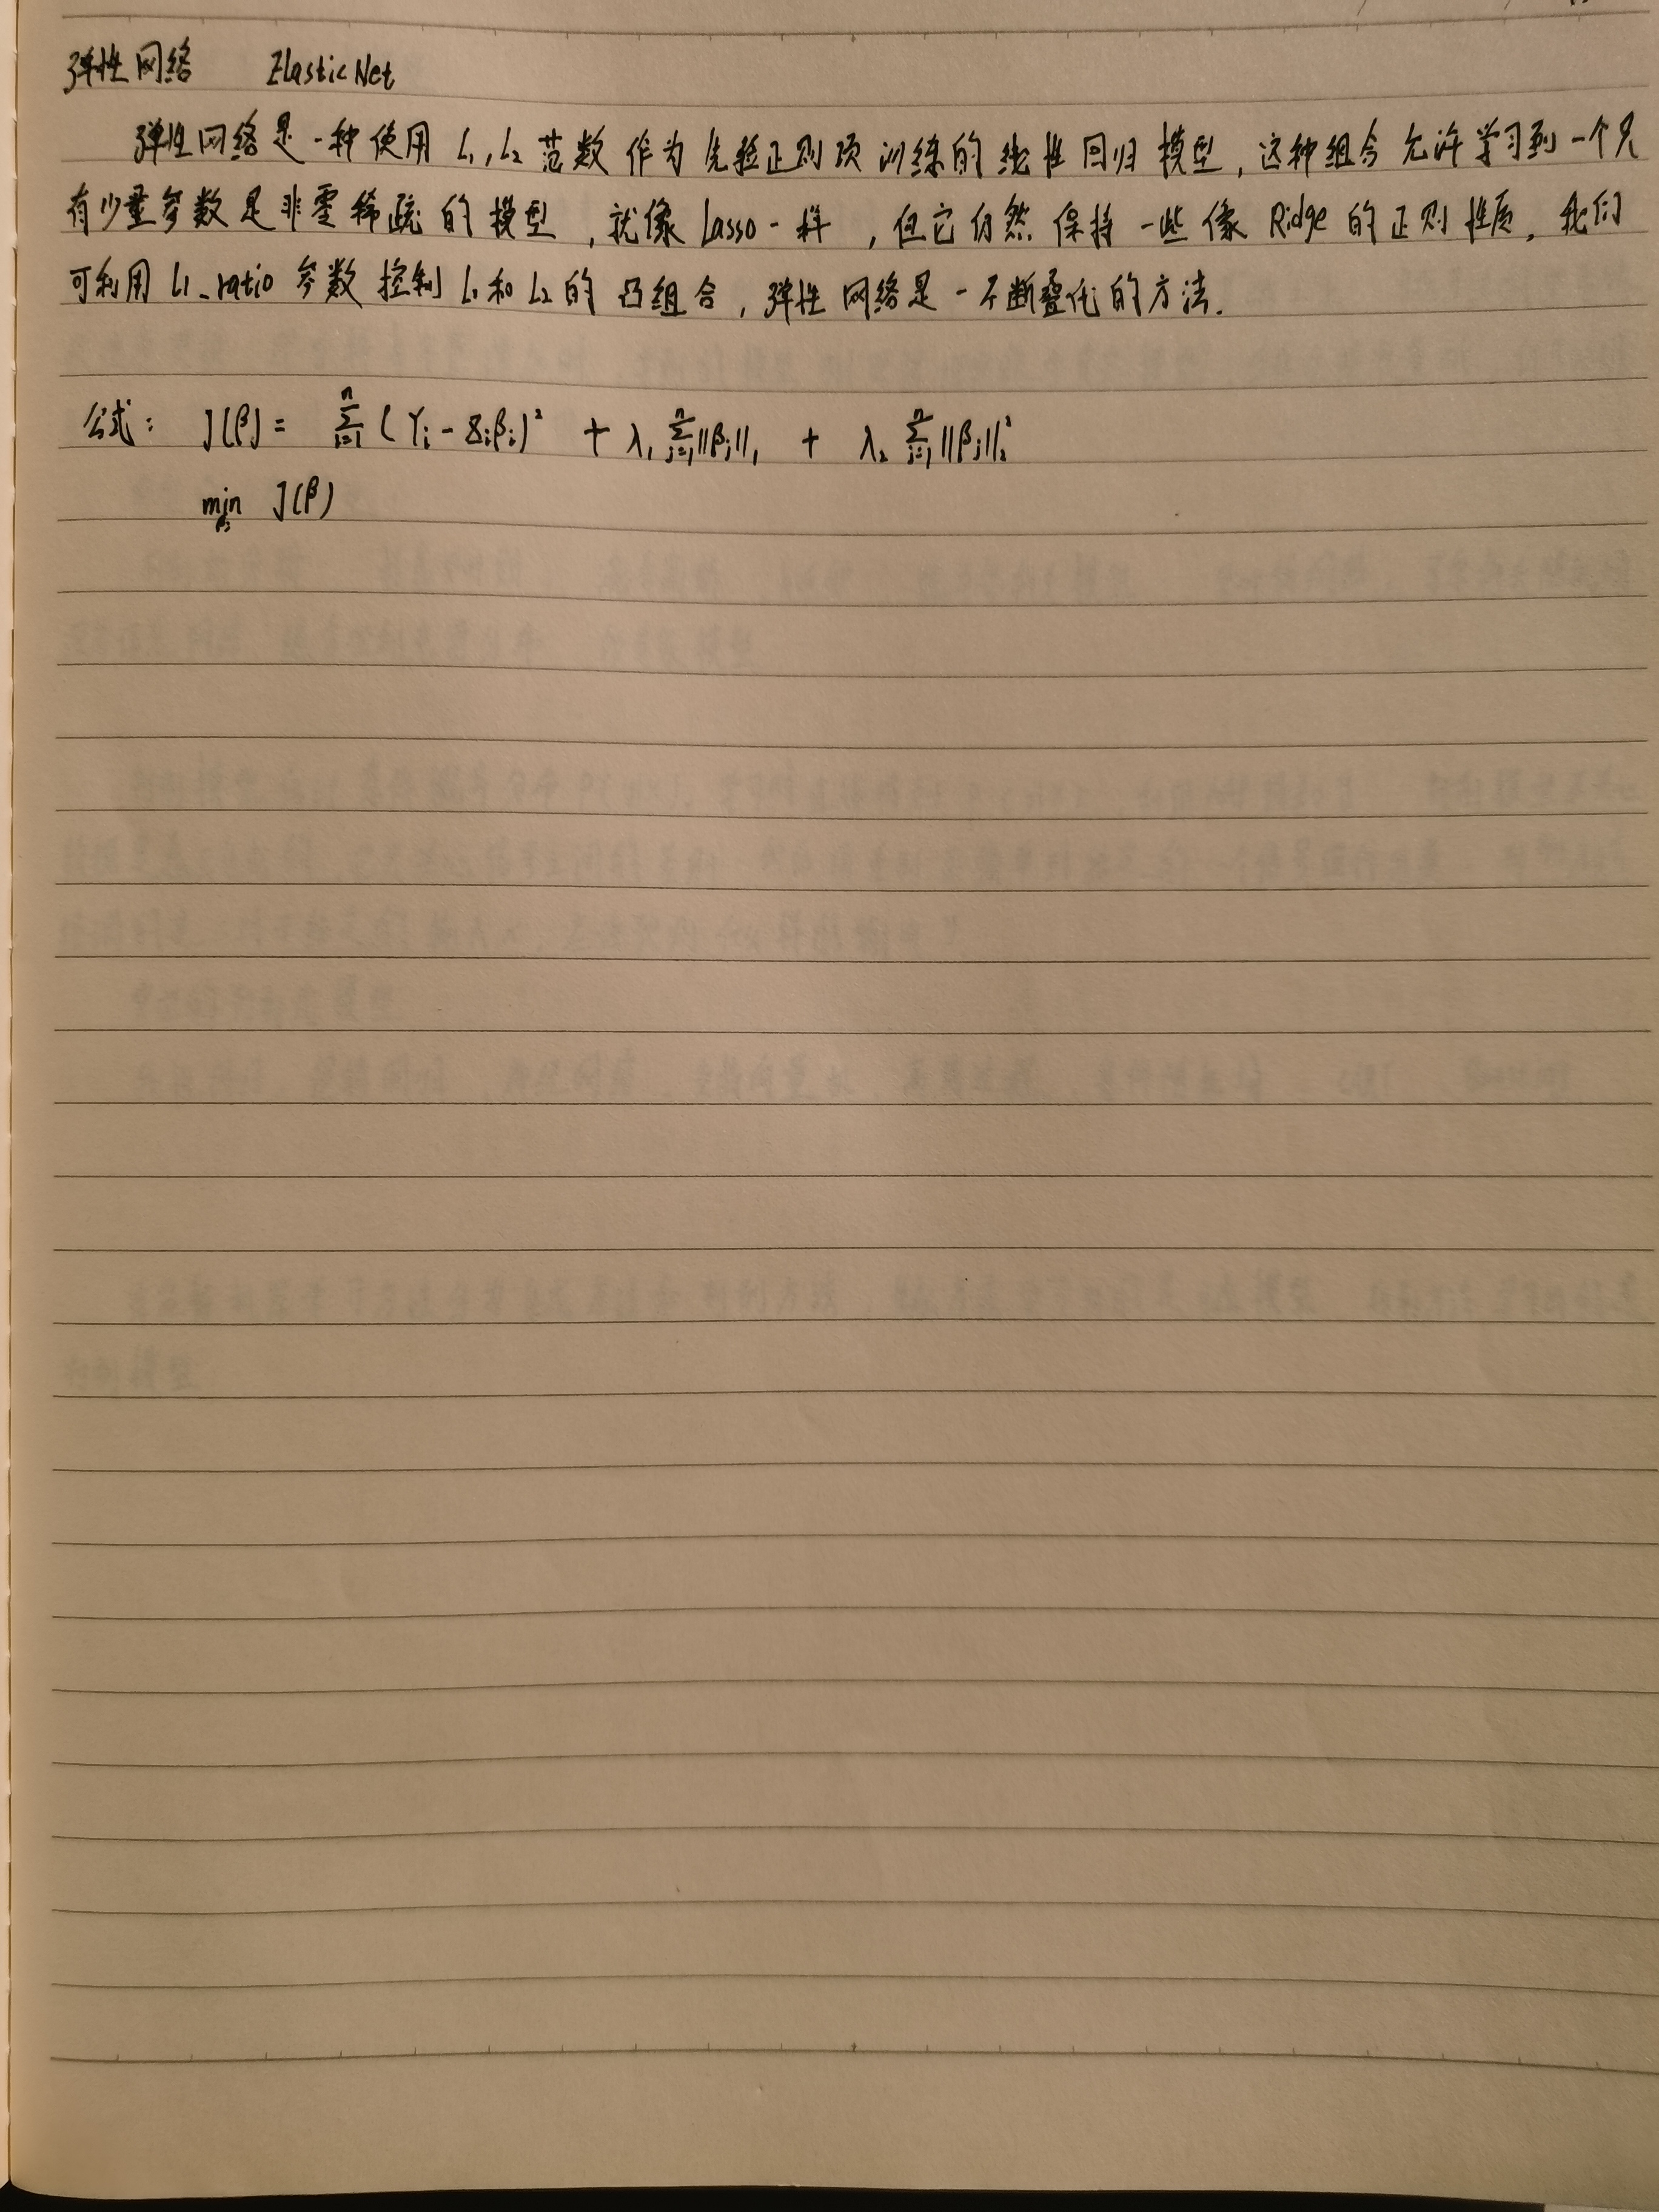 弹性网络 ElasticNet
弹性网络是一种使用 L₁,L₂ 范数作为先验正则项训练的线性回归模型,这种组合允许学习到一个只
有少量参数是非零稀疏的模型,就像Lasso一样,但它仍然保持一些像Ridge的正则性质,我们
可利用 L1_ratio 参数控制 L₁和 L₂的凸组合,弹性网络是一不断叠代的方法.
公式: J(β) = ∑ⁿᵢ₌₁ (Yᵢ - Xᵢβᵢ)² + λ₁ ∑ⁿⱼ₌₁||βⱼ||₁ + λ₂ ∑ⁿⱼ₌₁||βⱼ||₂²
min J(β)
β